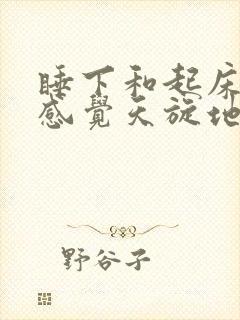 睡下和起床
感覺天旋地
野谷子